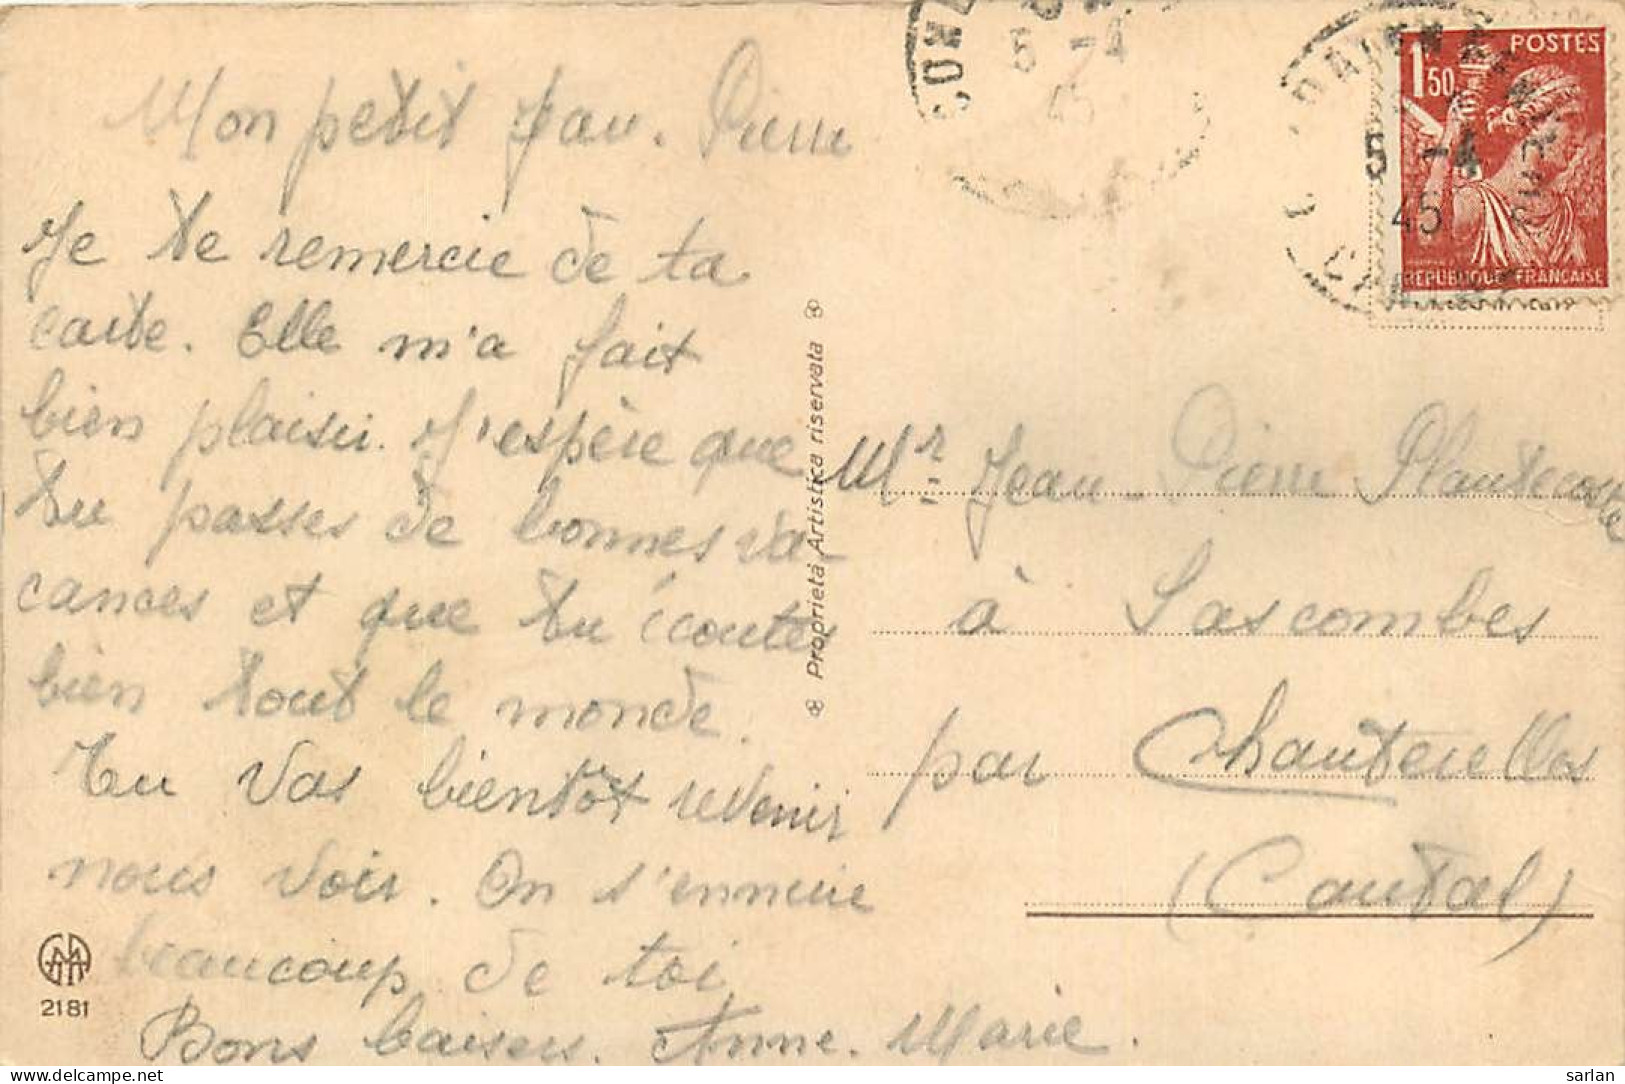 Mon petit Jean-Pierre
Je te remercie de ta
carte. Elle m'a fait
bien plaisir. J'espère que
tu passes de bonnes va
cances et que tu écoutes
bien tout le monde.
Tu vas bientôt revenir
nous voir. On s'ennuie
beaucoup de toi
Bons baisers. Anne-Marie.
2181
Proprietà Artistica riservata
5 -4
45
POSTES
1,50
5 -4
45
REPUBLIQUE FRANÇAISE
Mr. Jean-Pierre Plantecoste
à Lascombes
par Chanterelles
(Cantal)
delcampe.net
sarlan